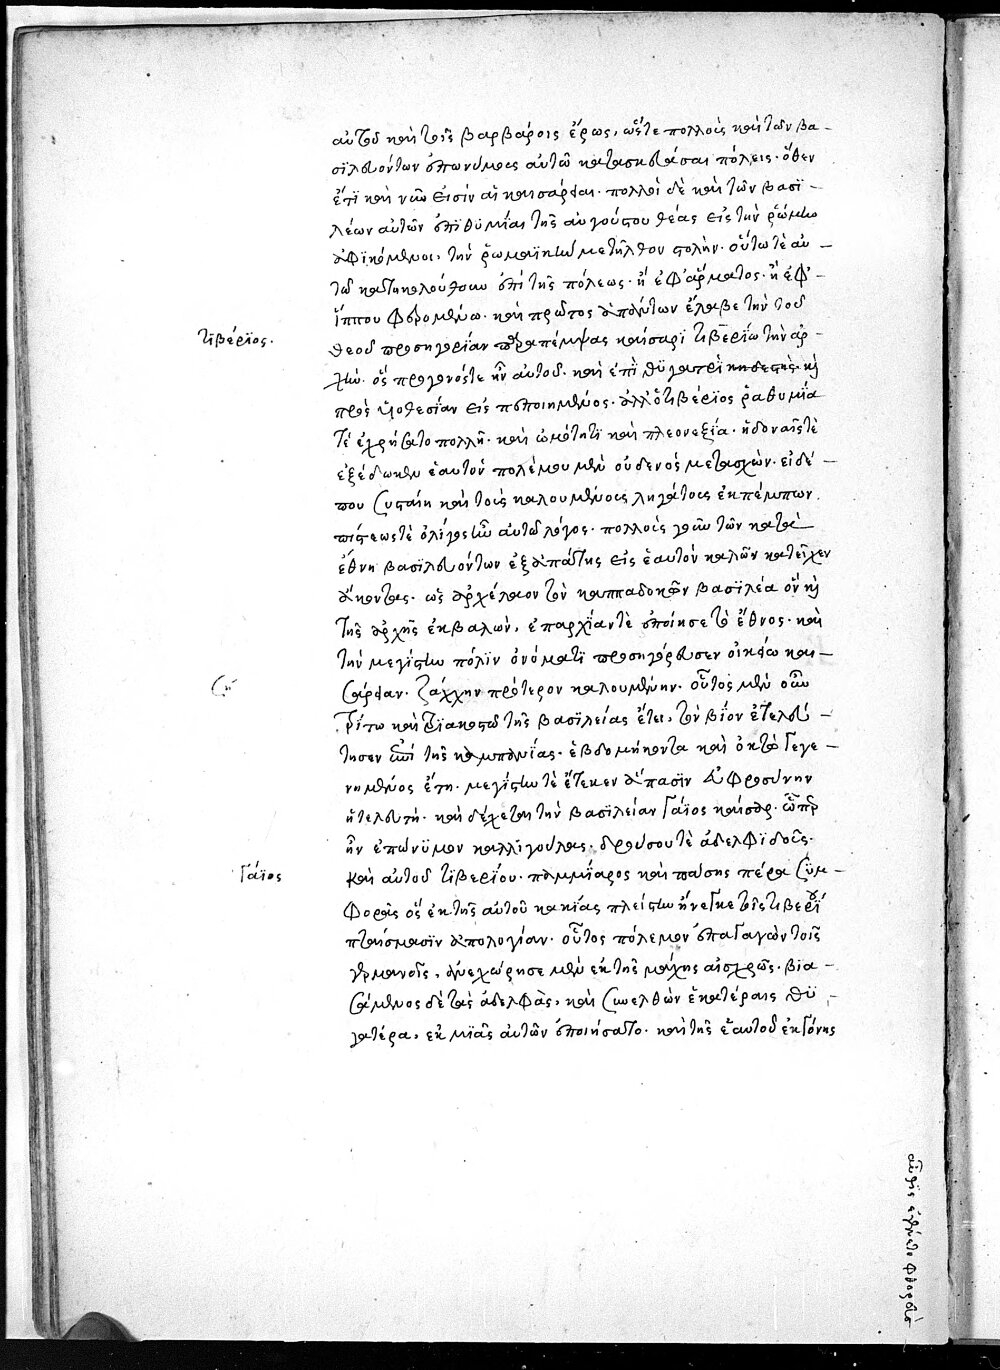 αὐτοῦ καὶ τοῖς βαρβάροις ἔρως, ὥστε πολλοὺς καὶ τῶν βα-
σϊλευόντων ἐπωνύμους αὐτῶ κατασκευάσαι πόλεις. ὅθεν
ἔτϊ καὶ νῦν εἰσὶν αἱ καισάρειαι. πολλοὶ δὲ καὶ τῶν βασϊ-
λέων αὐτῶν ἐπϊθϋμίαι τῆς αὐγούστου θέας εἰς τὴν ῥώμην
ἀφϊκόμενοι, τὴν ῥωμαϊκὴν μετῆλθον στολὴν. οὕτω τὲ αὐ-
τῶ κατηκολούθουν ἐπὶ τῆς πόλεως. ἢ ἐφ' ἅρματος. ἢ ἐφ'
ἵππου φερομένω. καὶ πρῶτος ἁπάντων ἔλαβε τὴν τοῦ
Τϊβέρϊος.
θεοῦ προσηγορίαν παραπέμψας καίσαρϊ τϊβερίω τὴν ἀρ-
χὴν. ὃς προγονός τε ἦν αὐτοῦ. καὶ ἐπὶ θϋγατρὶ κηδεστὴς. καὶ
πρὸς υἱοθεσίαν εἰσπεποιημένος. ἀλλ' ὁ τϊβέρϊος ῥαθυμία
τὲ ἐχρήσατο πολλῆ. καὶ ὠμότητϊ καὶ πλεονεξία. ἡδοναῖς τὲ
ἐξέδωκεν ἑαυτὸν πολέμου μὲν οὐδενὸς μετασχὼν. εἰ δέ-
που συσταίη καὶ τοὺς καλουμένους ληγάτους ἐκπέμπων.
πίστεως τὲ ὀλίγος ἦν αὐτῶ λόγος. πολλοὺς γοῦν τῶν κατὰ
ἔθνη βασϊλευόντων ἐξ ἀπάτης εἰς ἑαυτὸν καλῶν κατεῖχεν
ἄκοντας. ὡς ἀρχέλαον τὸν καππαδοκῶν βασϊλέα ὃν καὶ
τῆς ἀρχῆς ἐκβαλὼν, ἐπαρχίαν τὲ ἐποίησε τὸ ἔθνος. καὶ
τὴν μεγίστην πόλϊν ὀνόματϊ προσηγόρευσεν οἰκείω και-
Ση
σάρειαν. ζάχχην πρότερον καλουμένην. οὗτος μὲν οὖν
τρίτω καὶ τρϊακοστῶ τῆς βασϊλείας ἔτει, τὸν βίον ἐτελεύ-
τησεν ἐπὶ τῆς καμπανίας. ἑβδομήκοντα καὶ ὀκτὼ γεγε-
νημένος ἔτη. μεγίστην τὲ ἔτεκεν ἅπασϊν εὐφροσύνην
ἡ τελευτή. καὶ δέχεται τὴν βασϊλείαν Γάϊος καίσαρ. ὧπερ
ἦν ἐπώνϋμον καλλιγούλας. δρούσου τὲ ἀδελφϊδοῦς.
Γάϊος
καὶ αὐτοῦ τϊβερίου. παμμίαρος καὶ πάσης πέρα συμ-
φορᾶς ὃς ἐκ τῆς αὑτοῦ κακίας πλείστην ἤνεγκε τοῖς τϊβερίου
πταίσμασϊν ἀπολογίαν. οὗτος πόλεμον ἐπαγαγὼν τοῖς
γερμανοῖς, ἀνεχώρησε μὲν ἐκ τῆς μάχης αἰσχρῶς. βϊα-
σάμενος δὲ τὰς ἀδελφὰς, καὶ συνελθὼν ἑκατέραις θϋ-
γατέρα, ἐκ μϊᾶς αὐτῶν ἐποιήσατο. καὶ τῆς ἑαυτοῦ ἐκγόνης